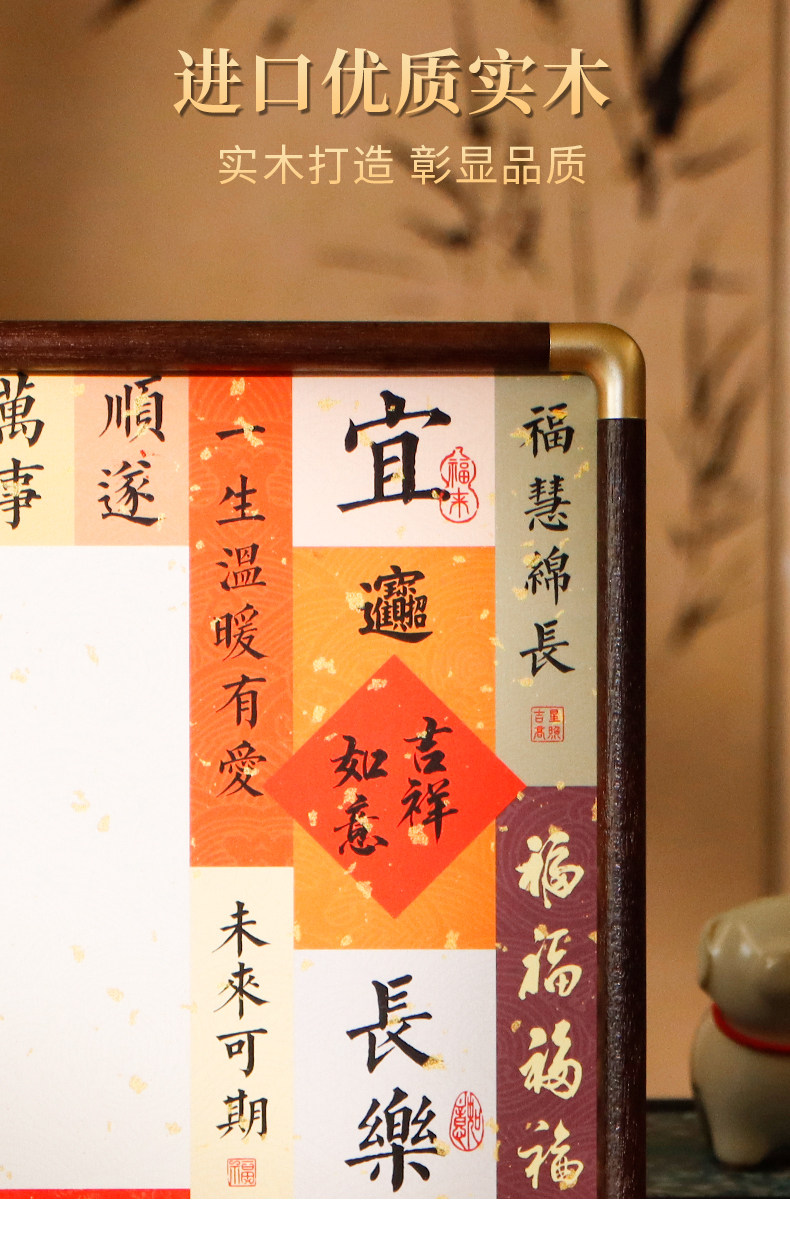 进口优质实木
实木打造 彰显品质
萬事
順遂
一生溫暖有愛
未來可期
宜
福来
招財進寶
吉祥
如意
長樂
如意
福慧綿長
吉星
高照
福福福福